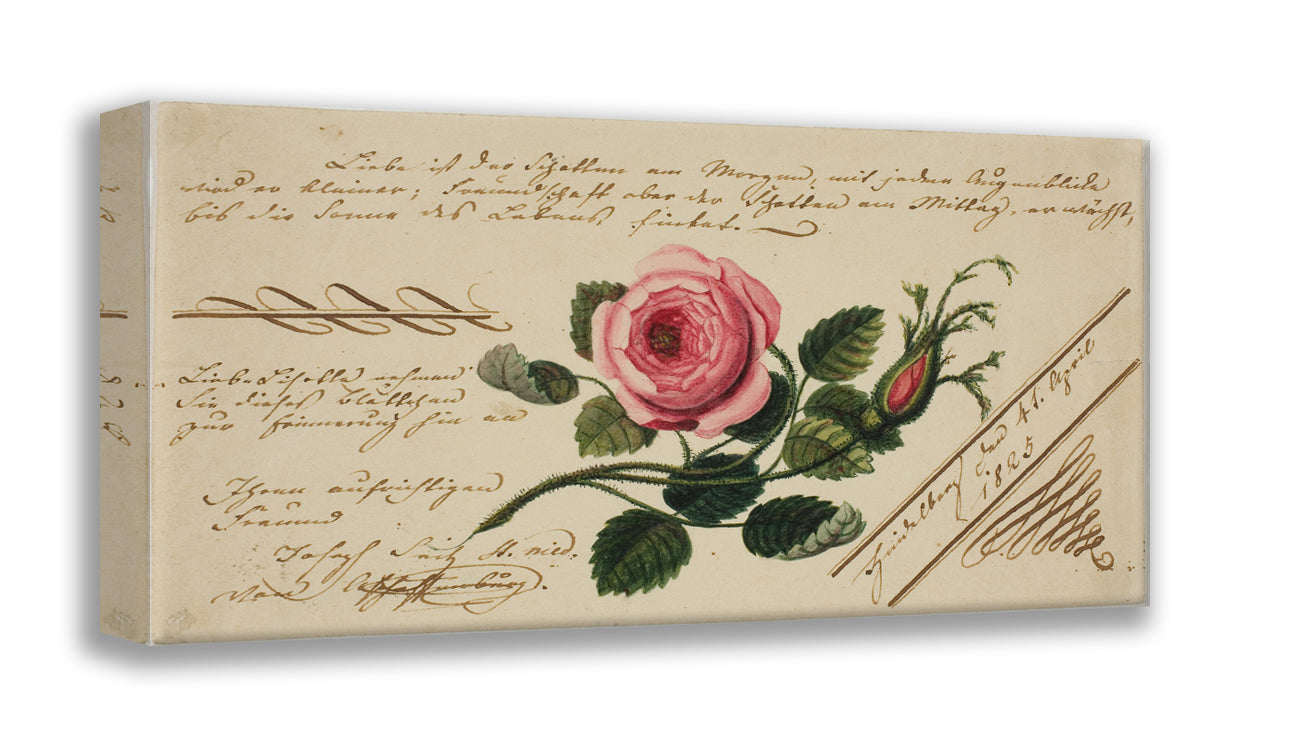 Liebe ist der Schatten am Morgen, mit jedem Augenblicke
wird er kleiner; Freundschaft aber der Schatten am Mittag, er wächst,
bis die Sonne des Lebens sinket.
nehmen
Sie dieses Blüttchen
zur Erinnerung hin an
Ihren aufrichtigen
Freund
Joseph Seitz St. med.
von Aschaffenburg.
Heidelberg den 4t. April
1825